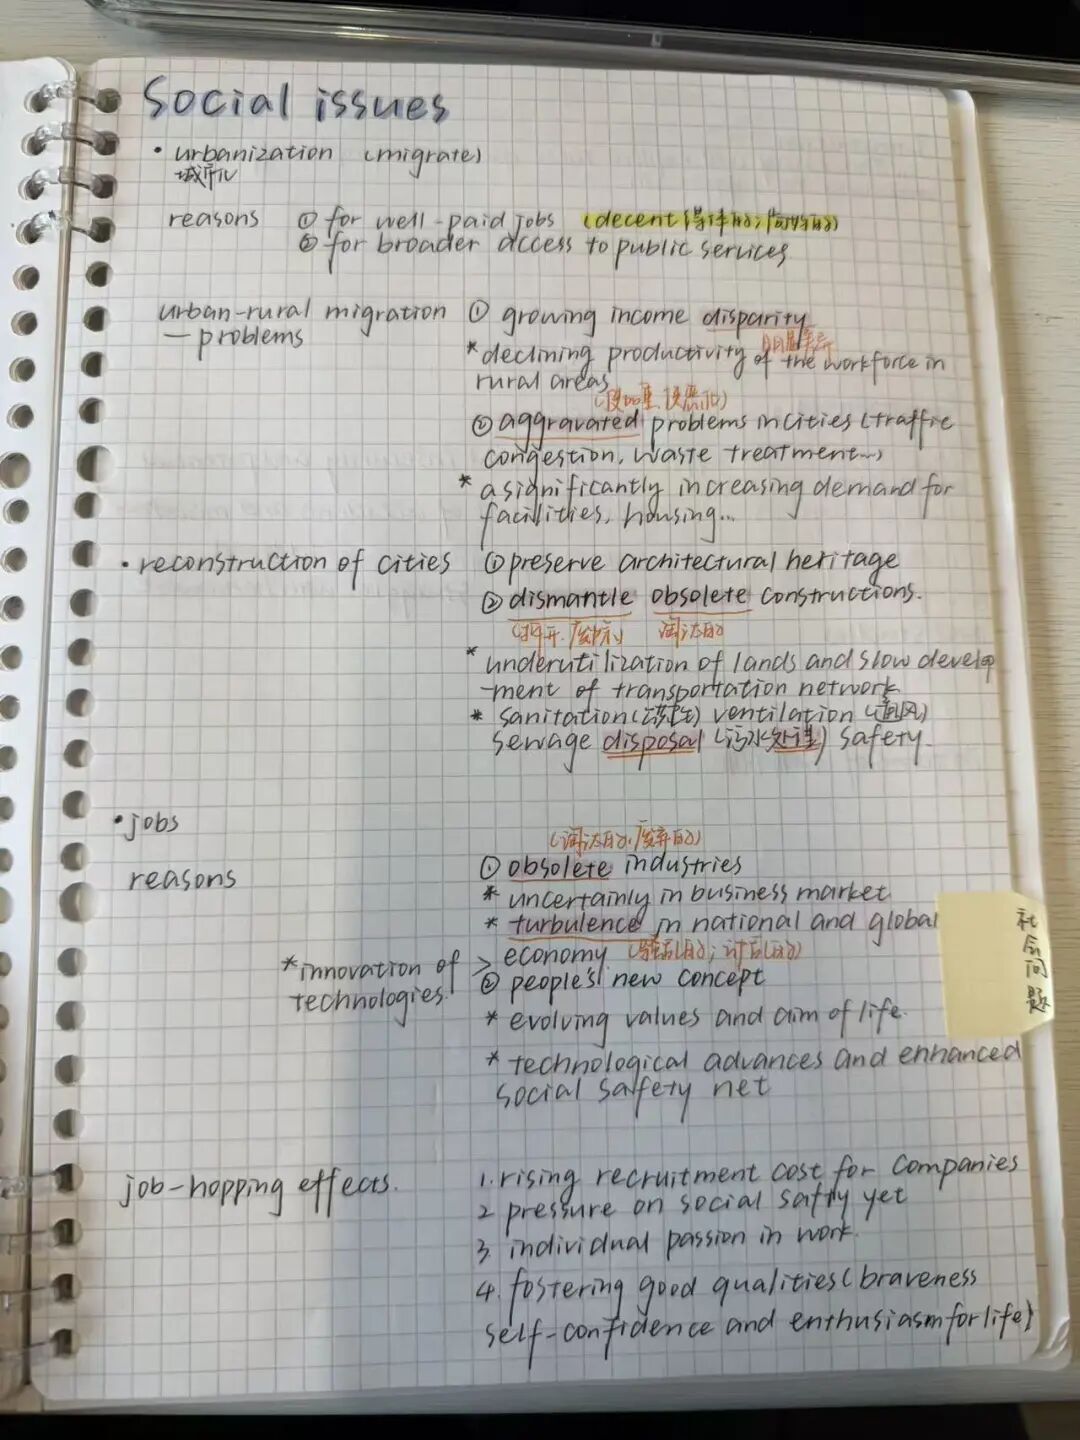 Social issues
• urbanization (migrate)
城市化
reasons ① for well-paid jobs (decent 得体的;尚好的)
② for broader access to public services
urban-rural migration ① growing income disparity
— problems
明显差异
* declining productivity of the workforce in
rural areas
(使加重、使恶化)
② aggravated problems in cities (traffic
congestion, waste treatment...)
* a significantly increasing demand for
facilities, housing...
• reconstruction of cities ① preserve architectural heritage
② dismantle obsolete constructions.
(拆开、废除) 淘汰的
* underutilization of lands and slow develop
-ment of transportation network
* sanitation ( ) ventilation (通风)
sewage disposal (污水处理) safety.
• jobs
(淘汰的、废弃的)
reasons ① obsolete industries
* uncertainly in business market
* turbulence in national and global
economy (骚乱的; 的)
* innovation of > ② people's new concept
technologies.
* evolving values and aim of life.
* technological advances and enhanced
social safety net
社会问题
job-hopping effects. 1. rising recruitment cost for companies
2 pressure on social safty yet
3. individual passion in work.
4. fostering good qualities (braveness
self-confidence and enthusiasm for life)